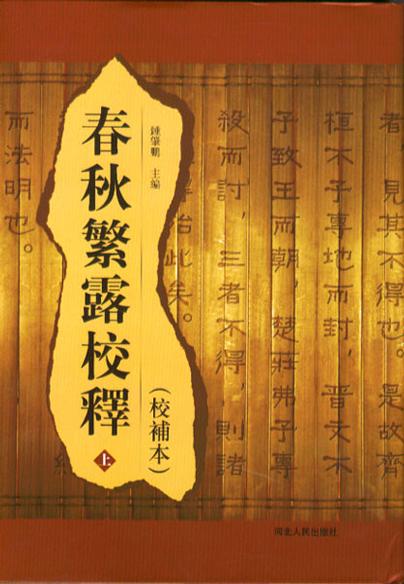 春秋繁露校釋
上
鍾肇鵬 主編
（校補本）
者，見其不得也。是故齊
桓不予專地而封，晉文不
予致王而朝，楚莊弗予專
殺而討，三者不得，則諸
始此矣。
而法明也。
河北人民出版社